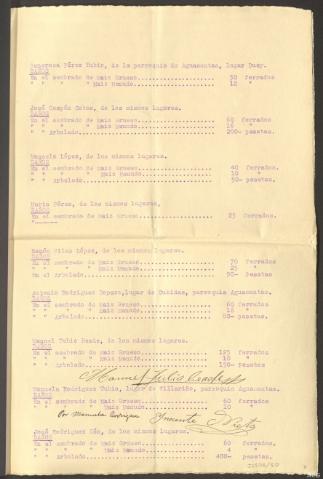 Generosa Pérez Tubio, de la parroquia de Aguasantas, lugar Duxy.
DAÑOS
En el sembrado de Maiz Grueso.................. 50 ferrados
" " " " Maiz Menudo.................. 12 "
José Campos Catos, de los mismos lugares.
DAÑOS
En el sembrado de Maiz Grueso.................. 60 ferrados
" " " " Maiz Menudo.................. 16 "
" " Arbolado.................. 200- pesetas.
Manuela López, de los mismos lugares.
DAÑOS
En el sembrado de Maiz Grueso.................. 40 ferrados
" " " " Maiz Menudo.................. 10 "
" " Arbolado.................. 50- pesetas.
María Pérez, de los mismos lugares,
DAÑOS
En el sembrado de Maiz Grueso.................. 25 ferrados
Ramón Vilas López, de los mismos lugares.
DAÑOS
En el sembrado de Maiz Grueso.................. 70 ferrados
" " " " Maiz Menudo.................. 25 "
" " Arbolado.................. 90- Pesetas
Antonio Rodríguez Reposo, lugar de Cabidas, parroquia Aguasantas.
En el sembrado de Maiz Grueso.................. 60 ferrados
" " " " Maiz Menudo.................. 18 "
" " Arbolado.................. 80- pesetas.
Manuel Tubio, de los mismos lugares.
DAÑOS
En el sembrado de Maiz Grueso.................. 195 ferrados
" " " " Maiz Menudo.................. 18 "
" " Arbolado.................. 150- Pesetas
Manuel Tubio
Manuela Rodríguez Tubio, lugar de Villariño, parroquia Aguasantas.
En el sembrado de Maiz Grueso.................. 60 ferrados
" " " " Maiz Menudo.................. 10 "
Por Manuela Rodríguez
José Rodríguez, de los mismos lugares.
DAÑOS
En el sembrado de Maiz Grueso.................. 60 ferrados
" " " " Maiz Menudo.................. 4 "
" " Arbolado.................. 400- pesetas.